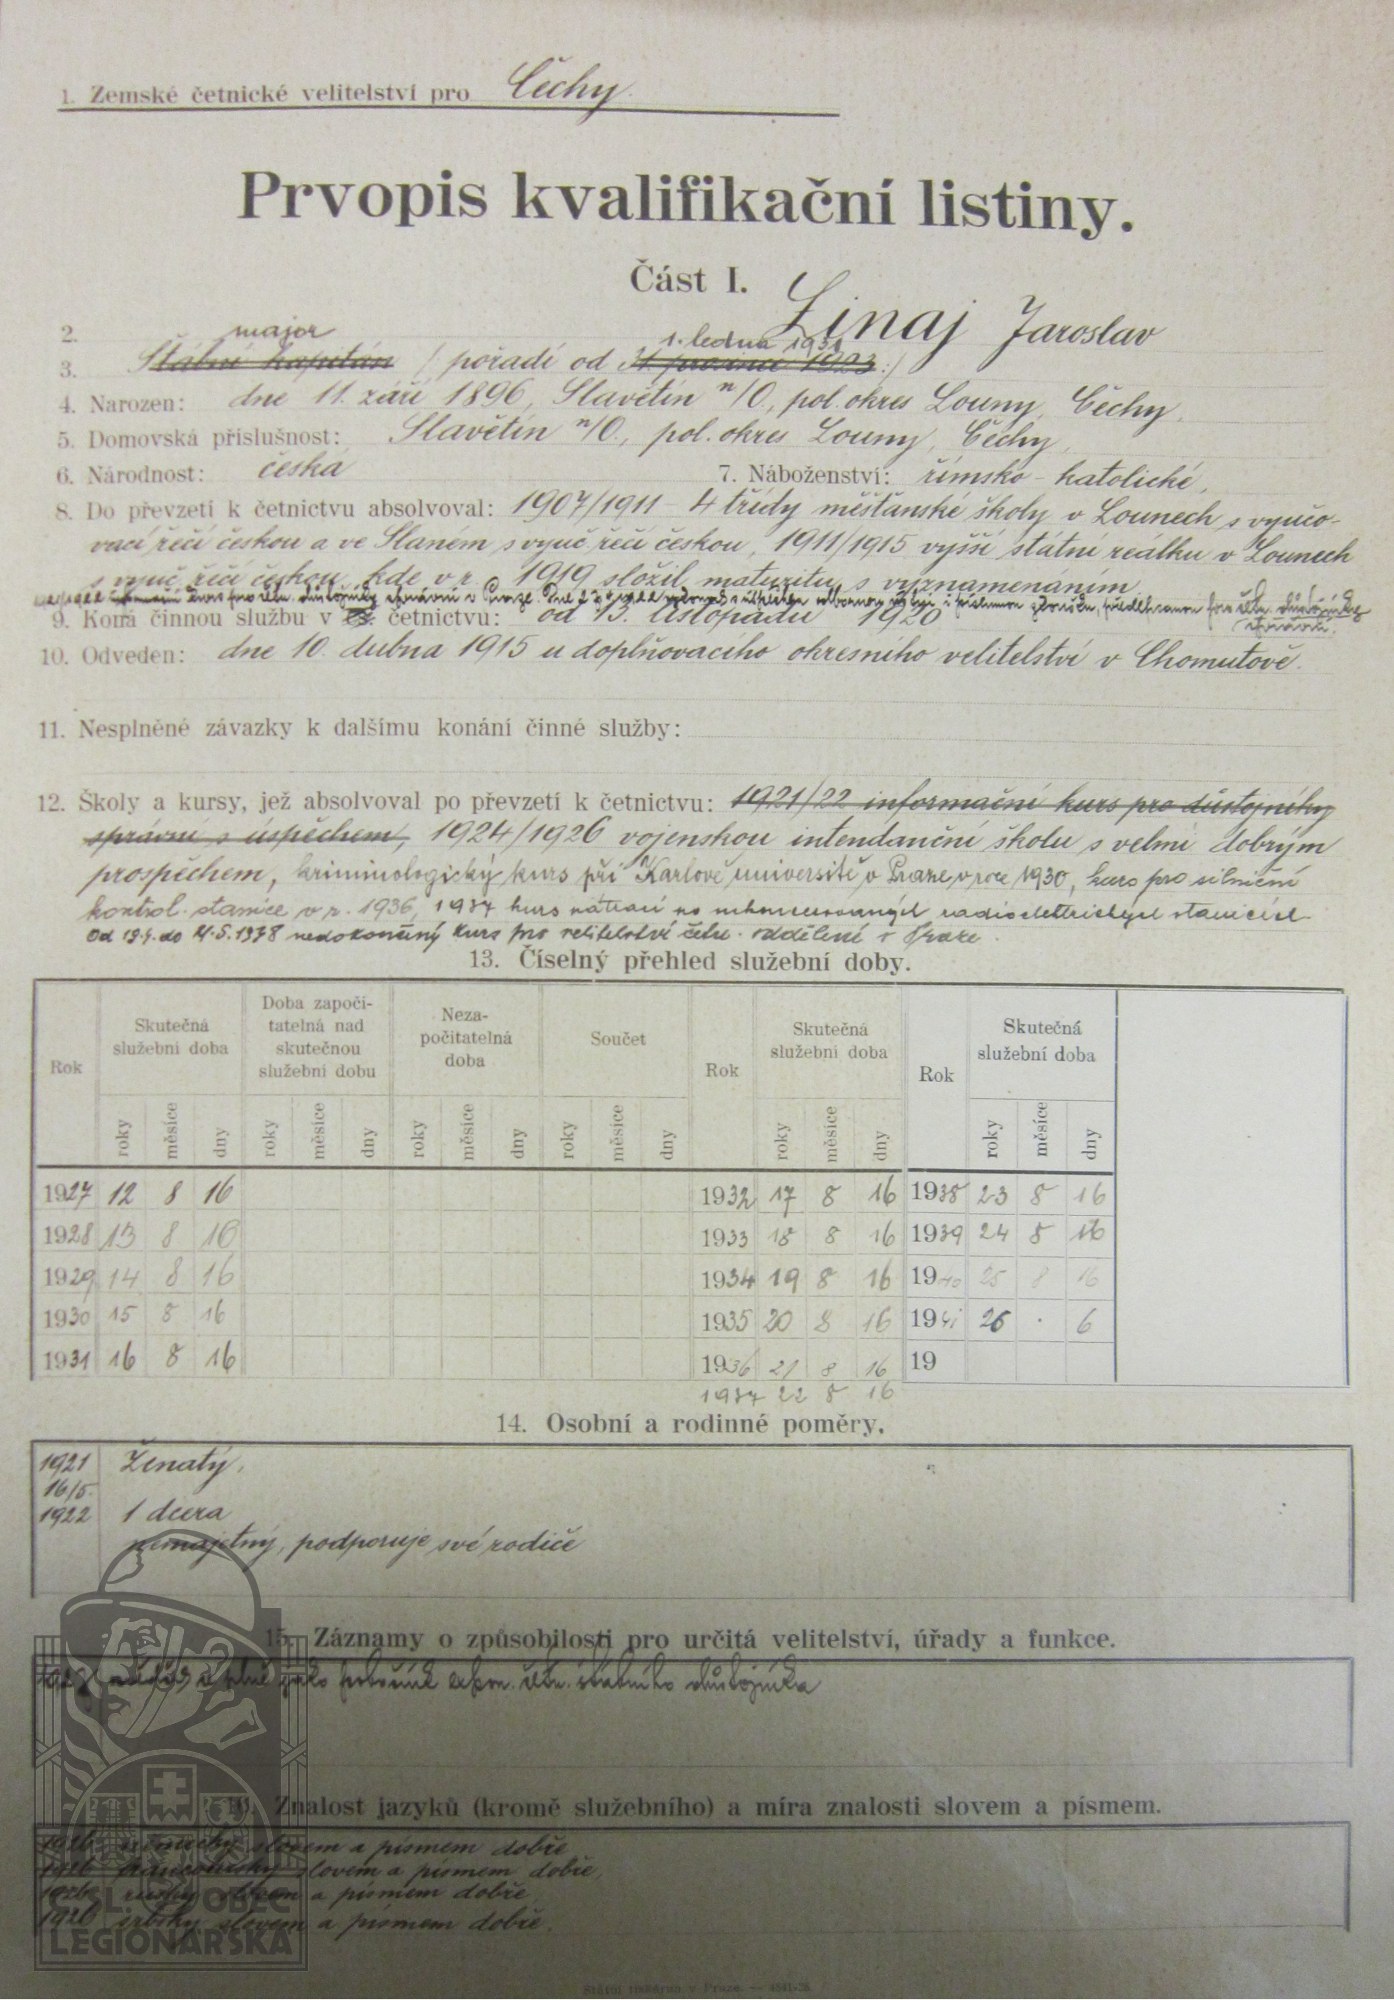 1. Zemské četnické velitelství pro Čechy.
Prvopis kvalifikační listiny.
Část I.
2. Linaj Jaroslav
major 1. ledna 1931
3. Štábní kapitán / pořadí od 31. prosince 1923./
4. Narozen: dne 11. září 1896, Slavětín n/O., pol. okres Louny, Čechy.
5. Domovská příslušnost: Slavětín n/O., pol. okres Louny, Čechy,
6. Národnost: česká 7. Náboženství: římsko-katolické,
8. Do převzetí k četnictvu absolvoval: 1907/1911 - 4 třídy měšťanské školy v Lounech s vyučo-
vací řečí českou a ve Slaném s vyuč. řečí českou, 1911/1915 vyšší státní reálku v Lounech
s vyuč. řečí českou, kde v r. 1919 složil maturitu s vyznamenáním
9. Koná činnou službu v čs. četnictvu: od 13. listopadu 1920
10. Odveden: dne 10. dubna 1915 u doplňovacího okresního velitelství v Chomutově.
11. Nesplněné závazky k dalšímu konání činné služby:
12. Školy a kursy, jež absolvoval po převzetí k četnictvu: 1921/22 informační kurs pro důstojníky
správní s úspěchem, 1924/1926 vojenskou intendanční školu s velmi dobrým
prospěchem, kriminologický kurs při Karlově universitě v Praze v roce 1930, kurs pro silniční
kontrol. stanice v r. 1936, 1937 kurs radioelektrických stanicích
Od 19.4. do 21.5.1938 nedokončený kurs pro velitelství četn. oddělení v Praze.
13. Číselný přehled služební doby.
Rok Skutečná služební doba Doba započí-tatelná nad skutečnou služební dobu Neza-počitatelná doba Součet Rok Skutečná služební doba Rok Skutečná služební doba
roky měsíce dny roky měsíce dny roky měsíce dny roky měsíce dny roky měsíce dny roky měsíce dny
1927 12 8 16 1932 17 8 16 1938 23 8 16
1928 13 8 16 1933 18 8 16 1939 24 8 16
1929 14 8 16 1934 19 8 16 1940 25 8 16
1930 15 8 16 1935 20 8 16 1941 26 · 6
1931 16 8 16 1936 21 8 16 19
1937 22 8 16
14. Osobní a rodinné poměry.
1921 Ženatý.
16/5.
1922 1 dcera
nemajetný, podporuje své rodiče
15. Záznamy o způsobilosti pro určitá velitelství, úřady a funkce.
jako četn. štábního důstojníka
16. Znalost jazyků (kromě služebního) a míra znalosti slovem a písmem.
1926 německy slovem a písmem dobře
1926 francouzsky slovem a písmem dobře,
1926 rusky slovem a písmem dobře,
1926 srbsky slovem a písmem dobře.
ČSL. OBEC
LEGIONÁŘSKÁ
Státní tiskárna v Praze. — 4841-26.